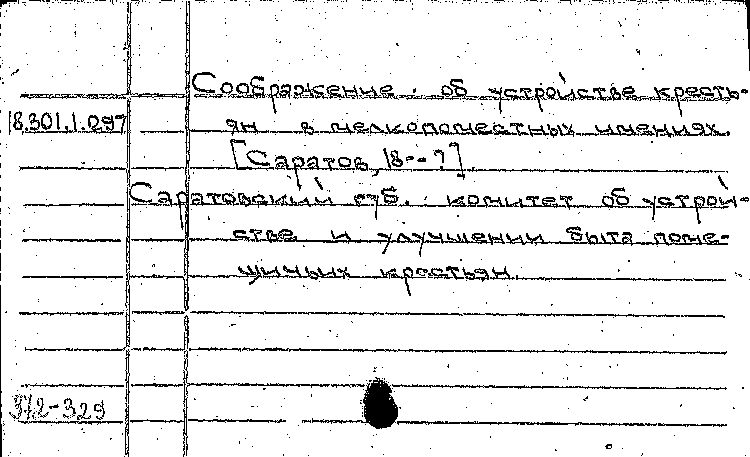 Соображение. об устройстве кресть-
18.301.1.097 ян в мелкопоместных имениях.
[Саратов, 18--?].
Саратовский губ. комитет об устрой-
стве и улучшении быта поме-
щичьих крестьян.
372-329